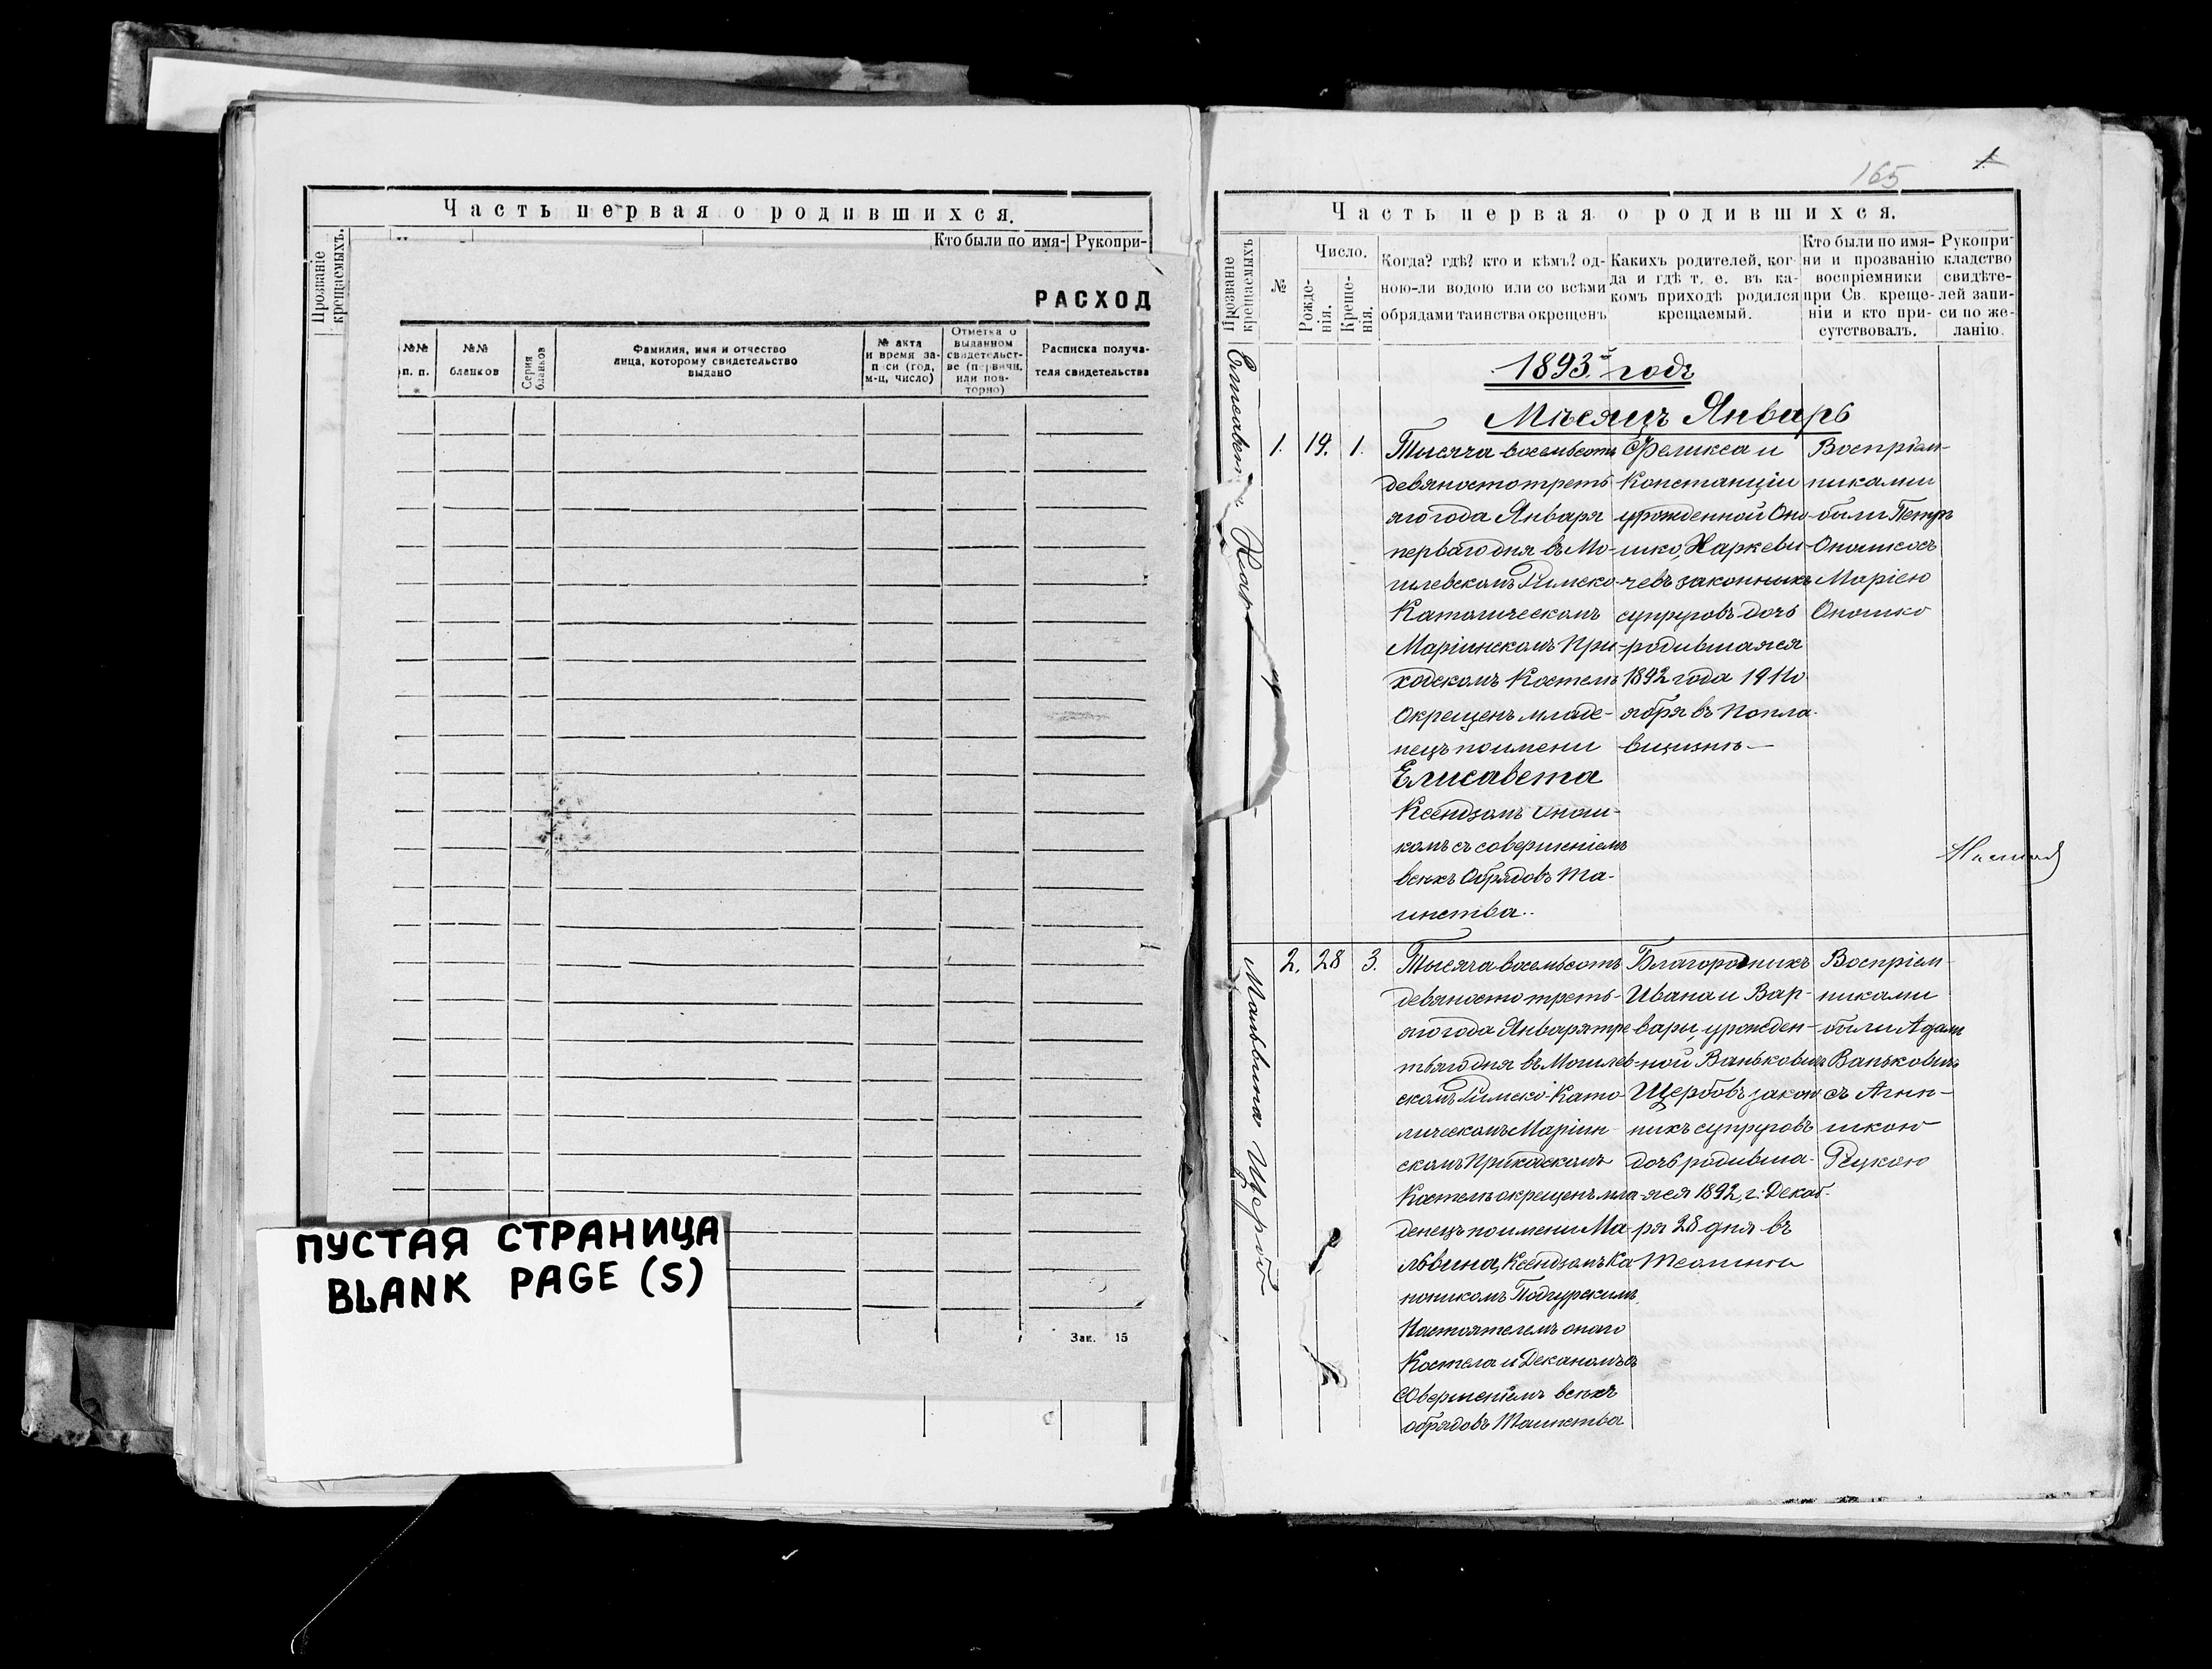 Часть первая о родившихся.
Прозваніе крещаемыхъ.
Кто были по имя-
Рукопри-
РАСХОД
№№ п. п.
№№ бланков
Серия бланков
Фамилия, имя и отчество
лица, которому свидетельство
выдано
№ акта
и время за-
писи (год,
м-ц, число)
Отметка о
выданном
свидетельст-
ве (первичн.
или пов-
торно)
Расписка получа-
теля свидетельства
Зак. 15
ПУСТАЯ СТРАНИЦА
BLANK PAGE (S)
165
1.
Часть первая о родившихся.
Прозваніе крещаемыхъ
№
Число.
Рожде-
нія.
Креще-
нія.
Когда? гдѣ? кто и кѣмъ? од-
ною-ли водою или со всѣми
обрядами таинства окрещенъ
Какихъ родителей, ког-
да и гдѣ т. е. въ ка-
комъ приходѣ родился
крещаемый.
Кто были по имя-
ни и прозванію
воспріемники
при Св. креще-
ніи и кто при-
сутствовалъ.
Рукопри-
кладство
свидѣте-
лей запи-
си по же-
ланію.
1893.й годъ
Мѣсяцъ Январь
Елисавета
1.
19.
1.
Тысяча восемьсотъ
девяносто треть-
яго года Января
перваго дня въ Мо-
гилевскомъ Римско-
Католическомъ
Маріинскомъ При-
ходскомъ Костелѣ
Окрещенъ младе-
нецъ по имени
Елисавета
Ксендзомъ Онош-
комъ съ совершеніемъ
всѣхъ Обрядовъ Та-
инства..
Феликса и
Констанціи
урожденной Оно-
шко, Наркеви-
чевъ законныхъ
супруговъ дочь
родившаяся
1892 года 19 Но
ября въ Попла-
вщизнѣ—
Воспріем-
никами
были Петръ
Оношко съ
Маріею
Оношко
Мальвина Щербо
2.
28
3.
Тысяча восемьсотъ
девяносто треть-
яго года Января тре
тьяго дня въ Могилев-
скомъ Римско-Като-
лическомъ Маріин-
скомъ Приходскомъ
Костелѣ окрещенъ мла-
денецъ по имени Ма-
львина, Ксендзомъ Ка
ноникомъ Подгурскимъ,
Настоятелемъ онаго
Костела и Деканомъ съ
Совершеніемъ всѣхъ
обрядовъ Таинства
Благородныхъ
Ивана и Вар-
вары, урожден-
ной Ваньковичъ
Щербовъ закон
ныхъ супруговъ
дочь родивша-
яся 1892, г. Декаб-
ря 28 дня въ
Воспріем-
никами
были Адамъ
Ваньковичъ
съ Агнѣ-
шкою
Рецкою